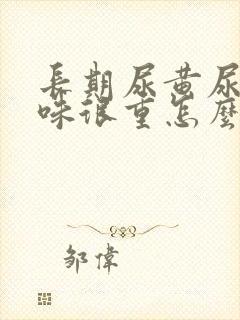 長期尿黄尿
味很重怎麼
邹偉